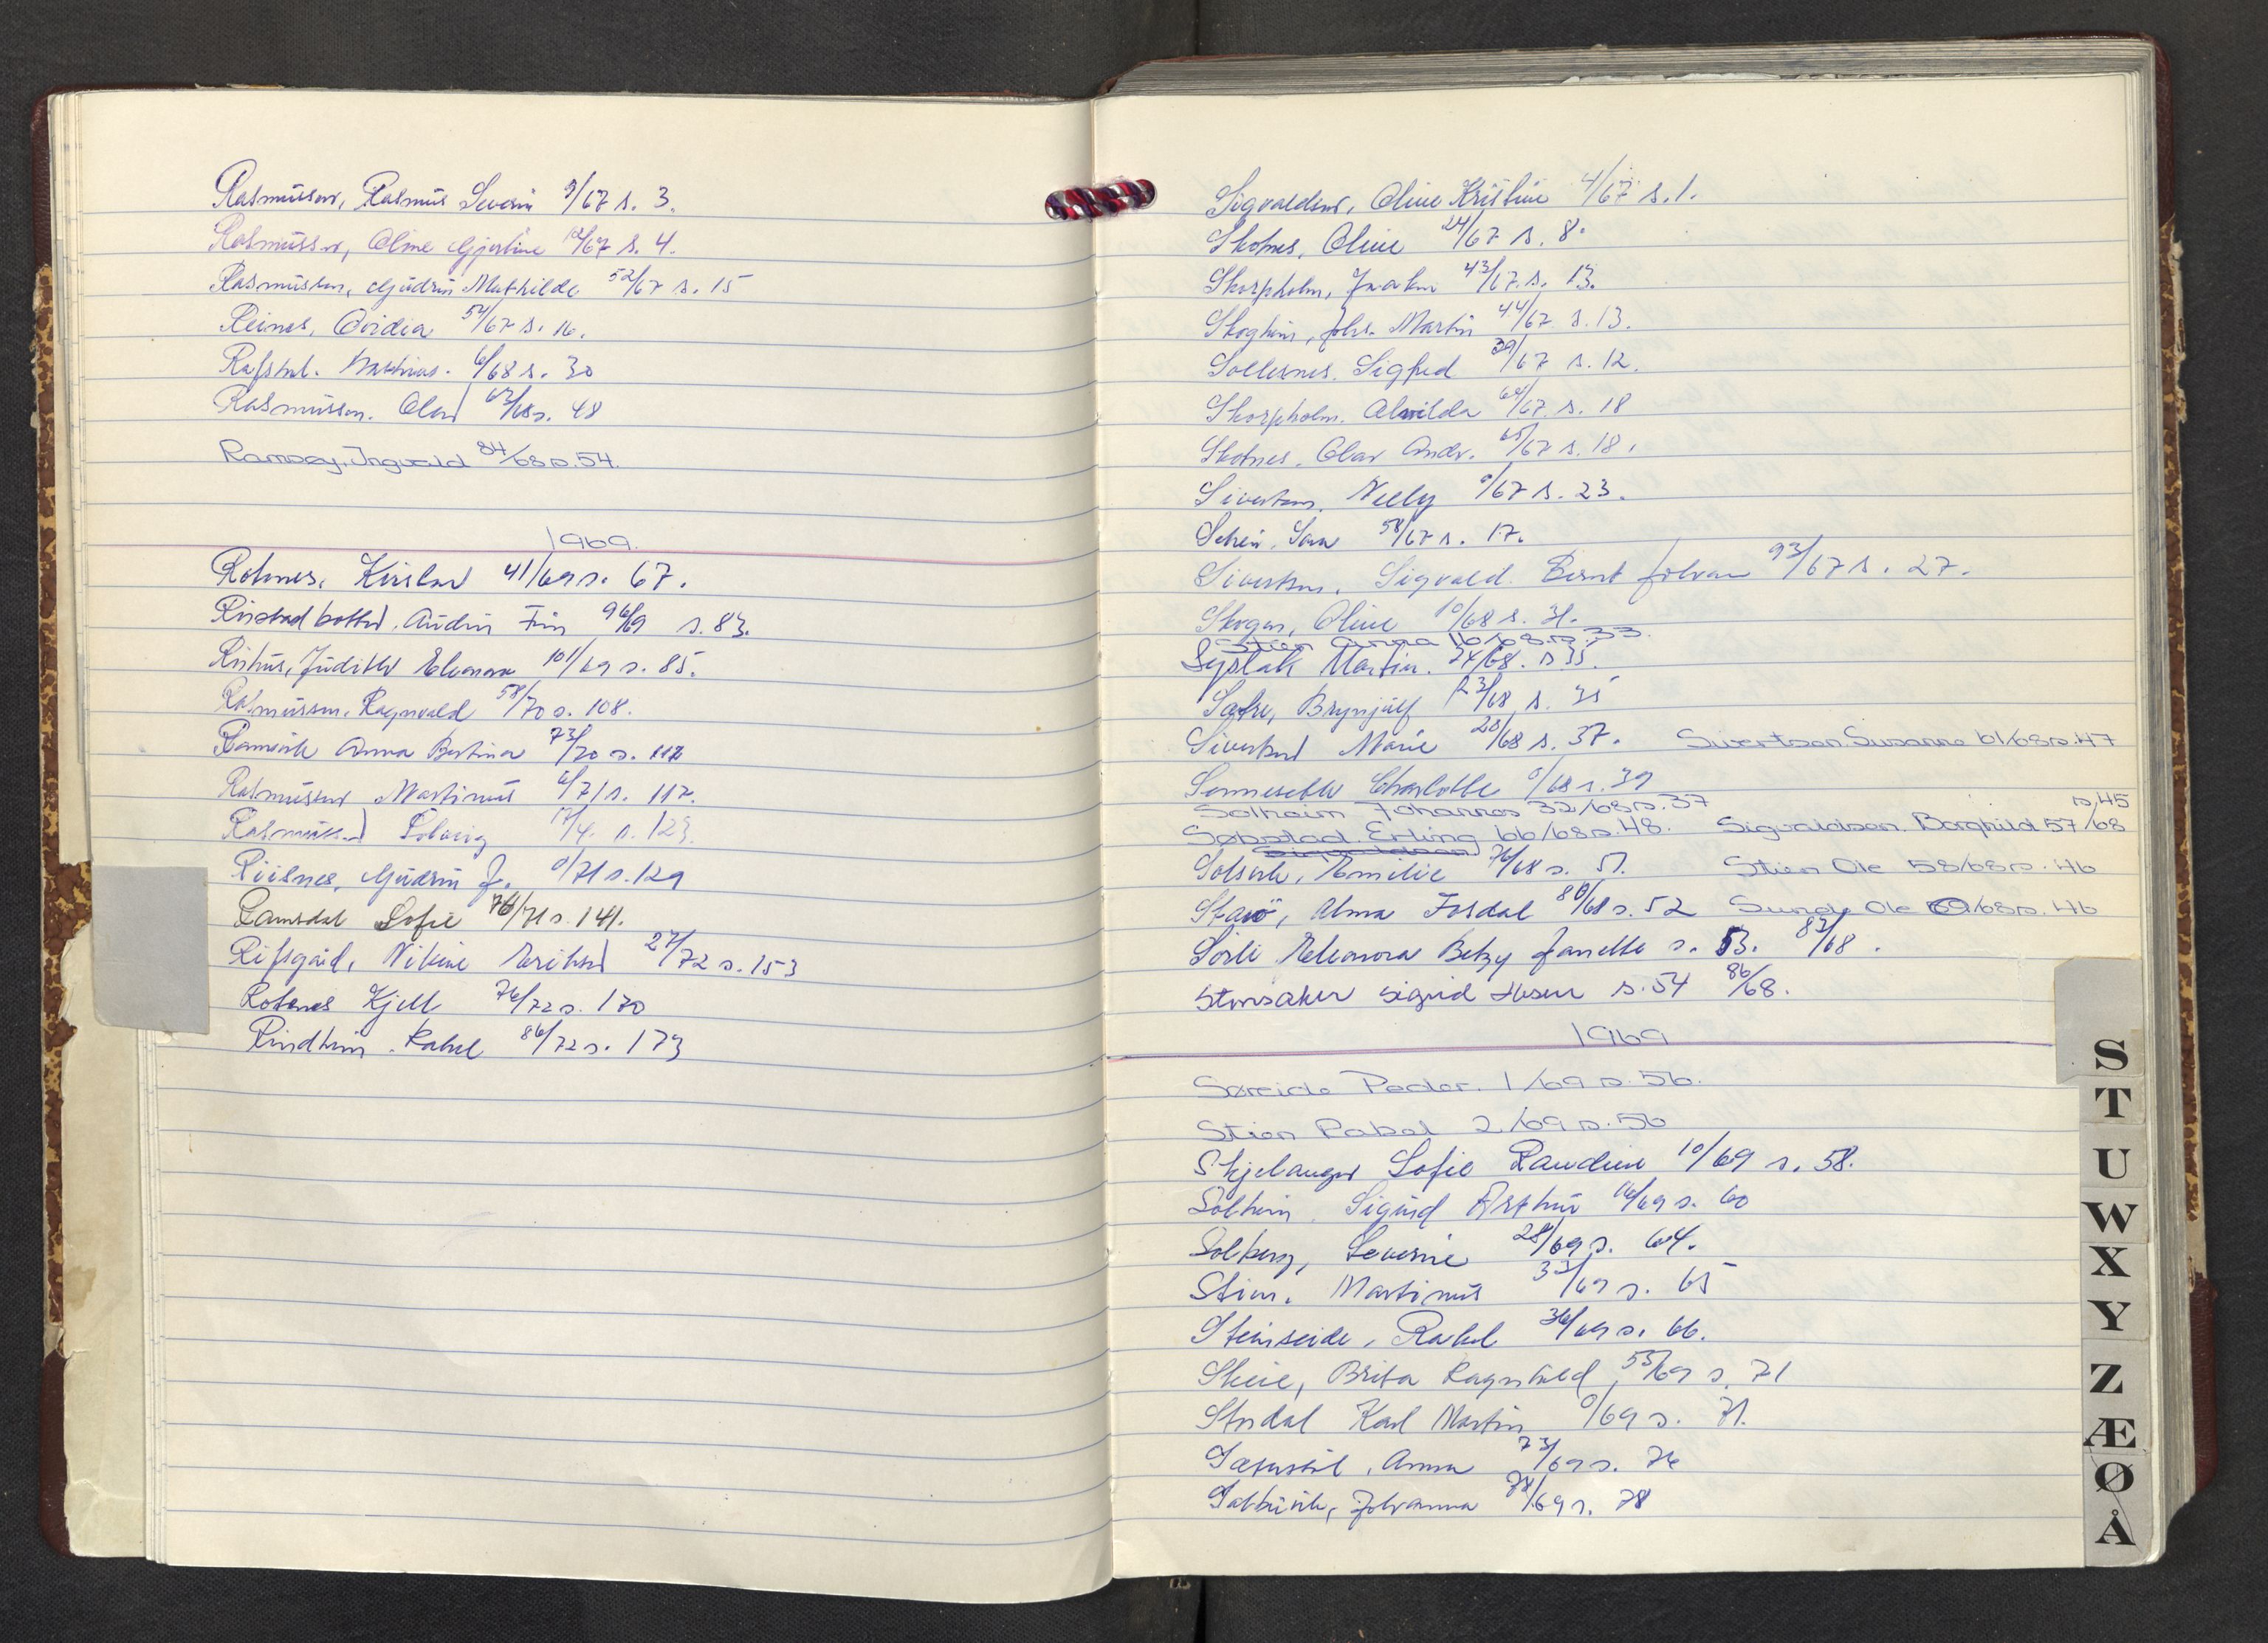 Rasmussen, Rasmus Severin 9/67 s. 3.
Rasmussen, Oline Gjertine 12/67 s. 4.
Rasmussen, Gudrun Mathilde 52/67 s. 15
Reines, Ovidia 54/67 s. 16.
Mathias. 6/68 s. 30
Rasmussen. Olav 67/68 s. 48
Ramsøy, Ingvald 84/68 s. 54.
1969.
Rotnes, 41/69 s. 67.
Audun Finn 96/69 s. 83.
Judith Eleonora 101/69 s. 85.
Rasmussen, Ragnvald 58/70 s. 108.
Ramsvik Anna Bertina 73/70 s.
Rasmussen Martinus 6/71 s. 117.
Rasmussen Solveig s. 123.
Riisnes, Gudrun J. 0/71 s. 129
Ramsdal Sofie 76/71 s. 141.
Nikine Eriksen 27/72 s. 153
Rotenes Kjell 76/72 s. 170
Rindheim. Rakel 86/72 s. 173
Sigvaldsen, Oline Kristine 4/67 s. 1.
Skotnes, Oline 24/67 s. 8.
Skorpholm, Joakim 43/67 s. 13.
Skogheim, Johs. Martin 44/67 s. 13.
Sollesnes, Sigfred 39/67 s. 12.
Skorpholm. Alvilda 64/67 s. 18
Skotnes, Olav Andr. 65/67 s. 18.
Sivertsen, Nelly 0/67 s. 23.
Schei, Sara 58/67 s. 17.
Sivertsen, Sigvald Bernt Johan 93/67 s. 27.
Skogen, Oline 10/68 s. 31.
Stien Anna 16/68 s. 33.
Martin. 24/68. s. 35.
Sætre, Brynjulf 23/68 s. 35
Sivertsen Marie 28/68 s. 37. Sivertsen Susanne 61/68 s. 47
Charlotte 0/68 s. 39
Solheim Johannes 32/68 s. 37 s. 45
Søbstad. Erling 66/68 s. 48. Sigvaldsen. Borghild 57/68
Solsvik, Emilie 76/68 s. 51. Stien Ole 58/68 s. 46
Alma Fosdal 80/68 s. 52 Sunde Ole /68 s. 46
Sørli Eleonora Betzy Janette s. 53. 83/68.
Stensaker Sigrid s. 54 86/68.
1969
Søreide Peder. 1/69 s. 56.
Stien Rakel 2/69 s. 56
Skjelanger Sofie Raudine 10/69 s. 58.
Solheim, Sigurd Arthur 16/69 s. 60
Solberg, Severine 28/69 s. 64.
Stien. Martinus 33/69 s. 65
Steinseide, Rakel 36/69 s. 66.
Skeie, Brita Ragnhild 55/69 s. 71
Stordal Karl Martin 0/69 s. 71.
Anna 73/69 s. 76
Johanna 78/69 s. 78
S
T
U
W
X
Y
Z
Æ
Ø
Å